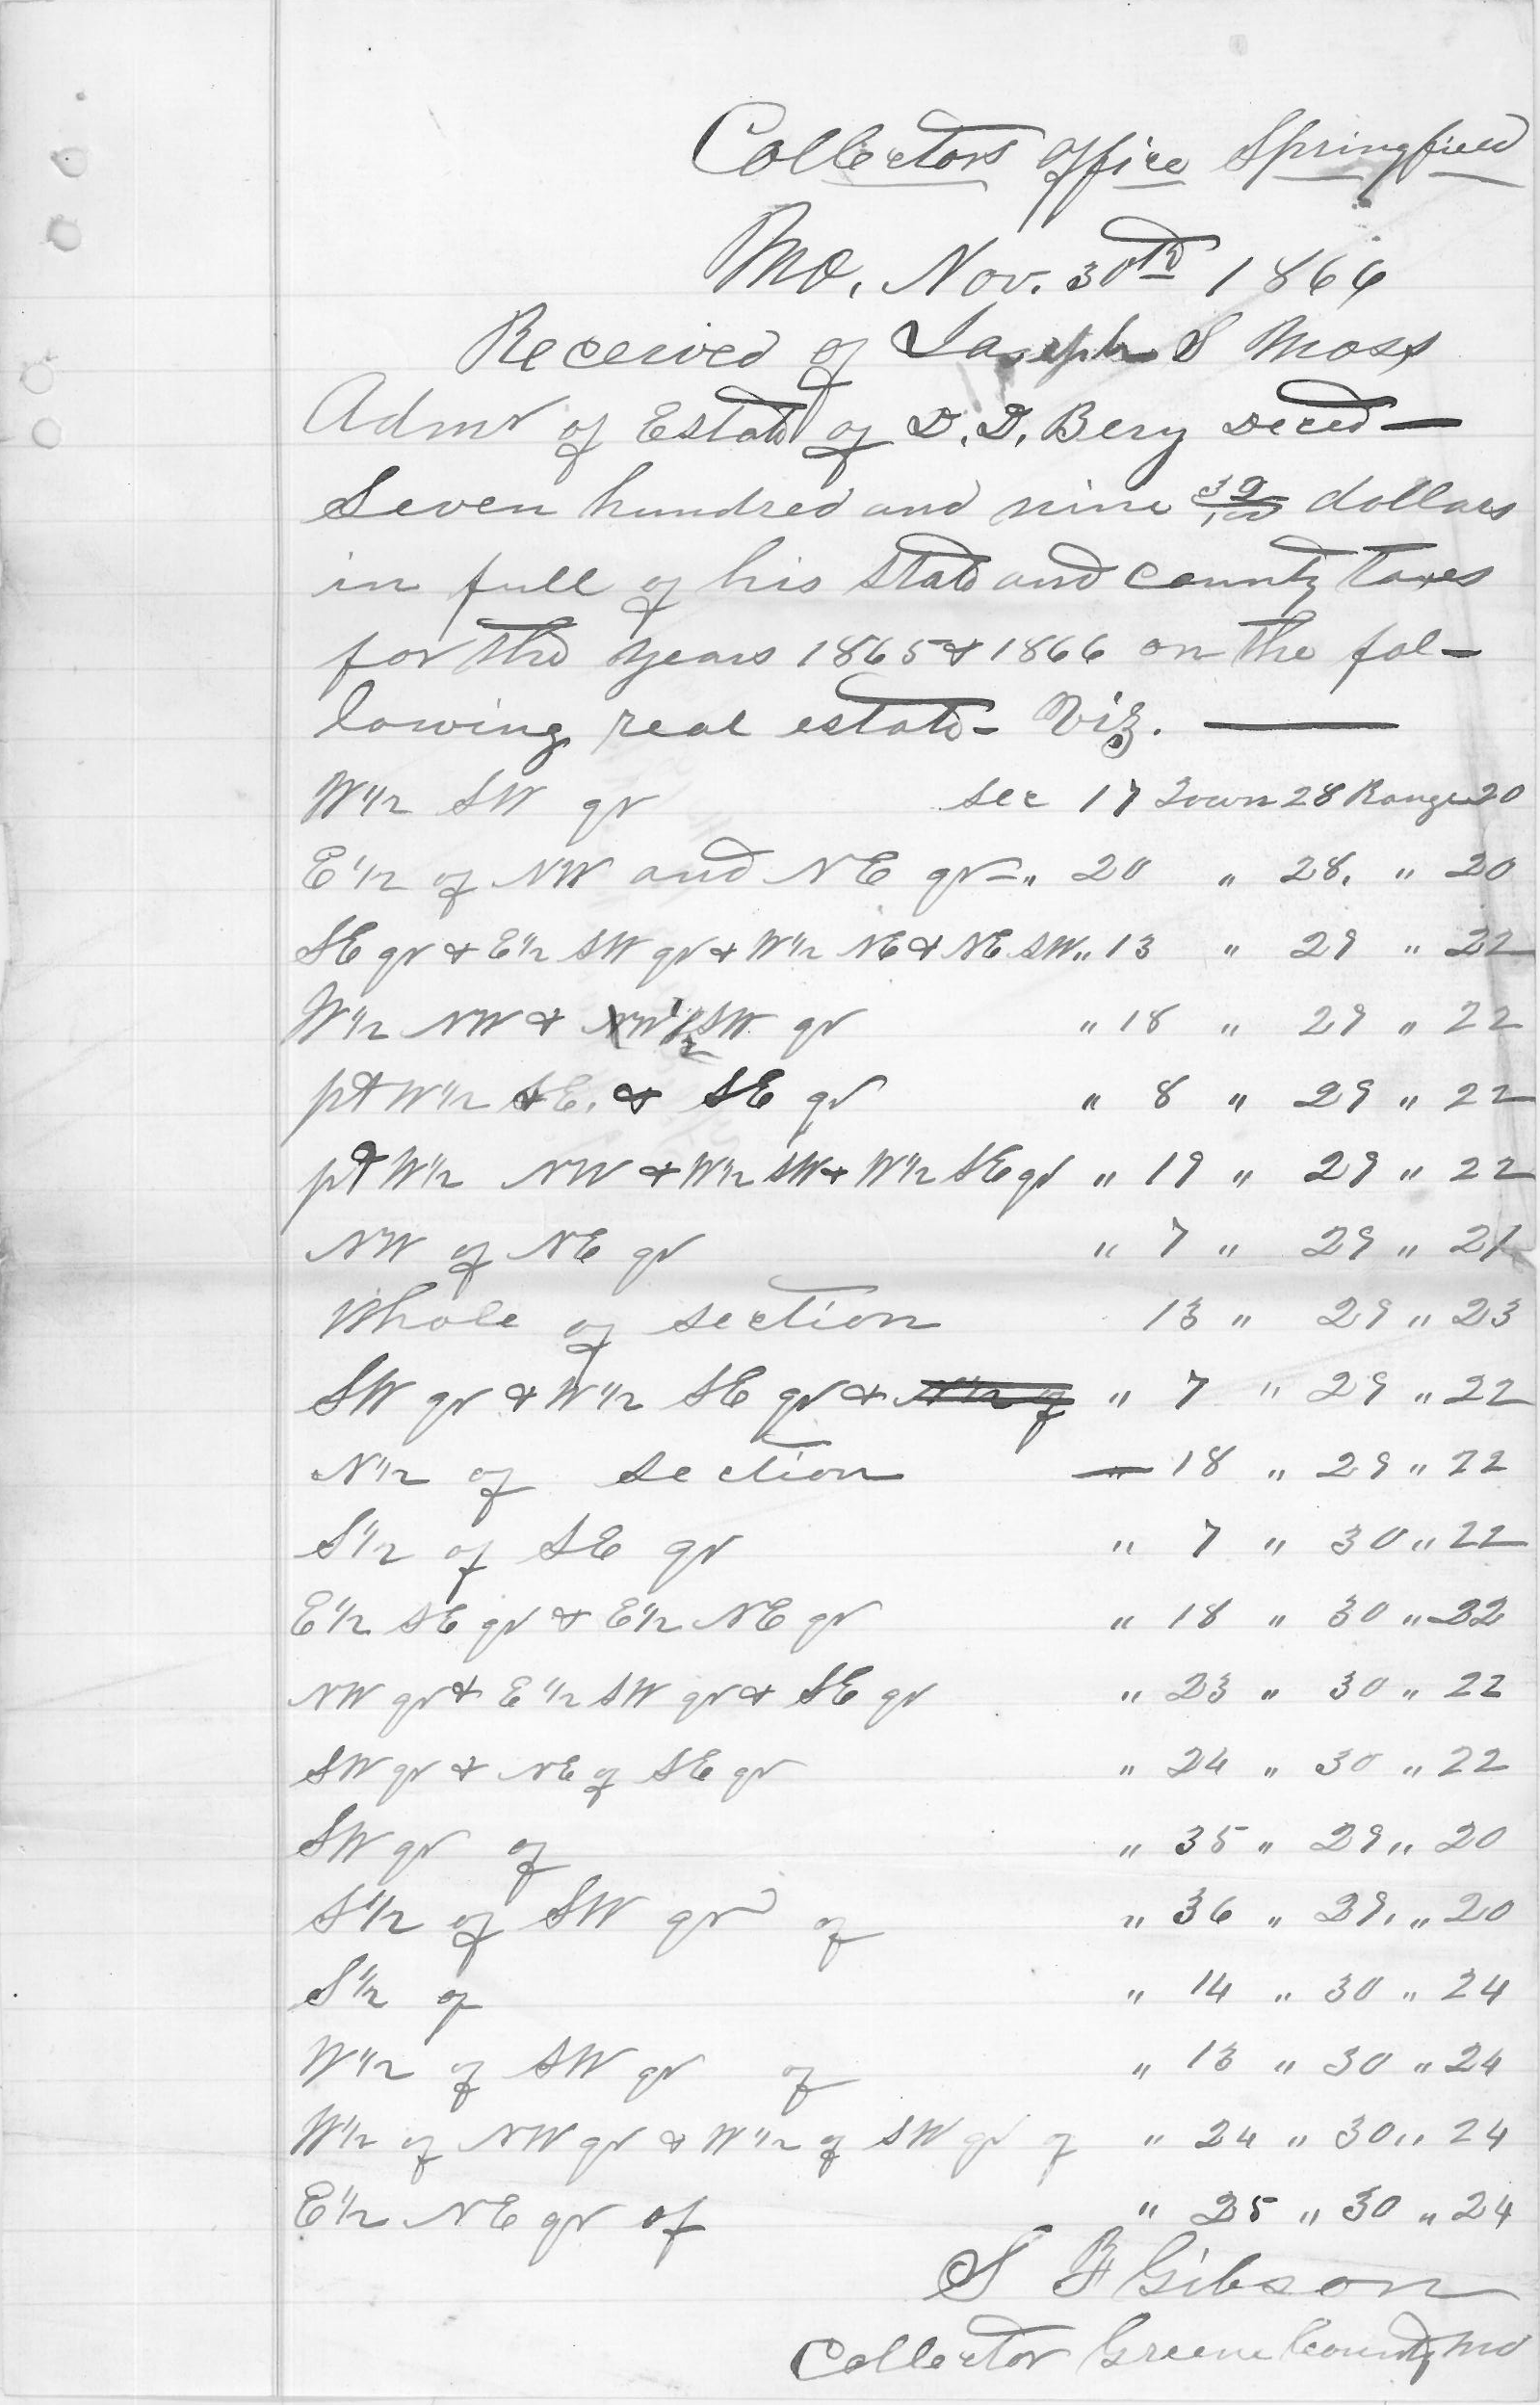 Collectors Office Springfield
Mo, Nov. 30th 1866
Received of Joseph S Moss
Admr of Estate of D. D. Bery Deced —
Seven hundred and nine 39/100 dollars
in full of his State and County Taxes
for the years 1865 & 1866 on the fol-
lowing real estate - Viz. —
W 1/2 SW qr Sec 17 Town 28 Range 20
E 1/2 of NW and NE qr - " 20 " 28. " 20
SE qr & E 1/2 SW qr & W 1/2 NE & NE SW " 13 " 29 " 22
W 1/2 NW & NW 1/2 SW qr " 18 " 29 " 22
pt W 1/2 SE. & SE qr " 8 " 29 " 22
pt W 1/2 NW & W 1/2 SW & W 1/2 SE qr " 19 " 29 " 22
NW of NE qr " 7 " 29 " 21
Whole of section 13 " 29 " 23
SW qr & W 1/2 SE qr & N 1/2 of " 7 " 29 " 22
N 1/2 of section " 18 " 29 " 22
S 1/2 of SE qr " 7 " 30 " 22
E 1/2 SE qr & E 1/2 NE qr " 18 " 30 " 22
NW qr & E 1/2 SW qr & SE qr " 23 " 30 " 22
SW qr & NE of SE qr " 24 " 30 " 22
SW qr of " 35 " 29 " 20
S 1/2 of SW qr of " 36 " 29. " 20
S 1/2 of " 14 " 30 " 24
W 1/2 of SW qr of " 13 " 30 " 24
W 1/2 of NW qr & W 1/2 of SW qr of " 24 " 30 " 24
E 1/2 NE qr of " 25 " 30 " 24
S F Gibson
Collector Greene County Mo